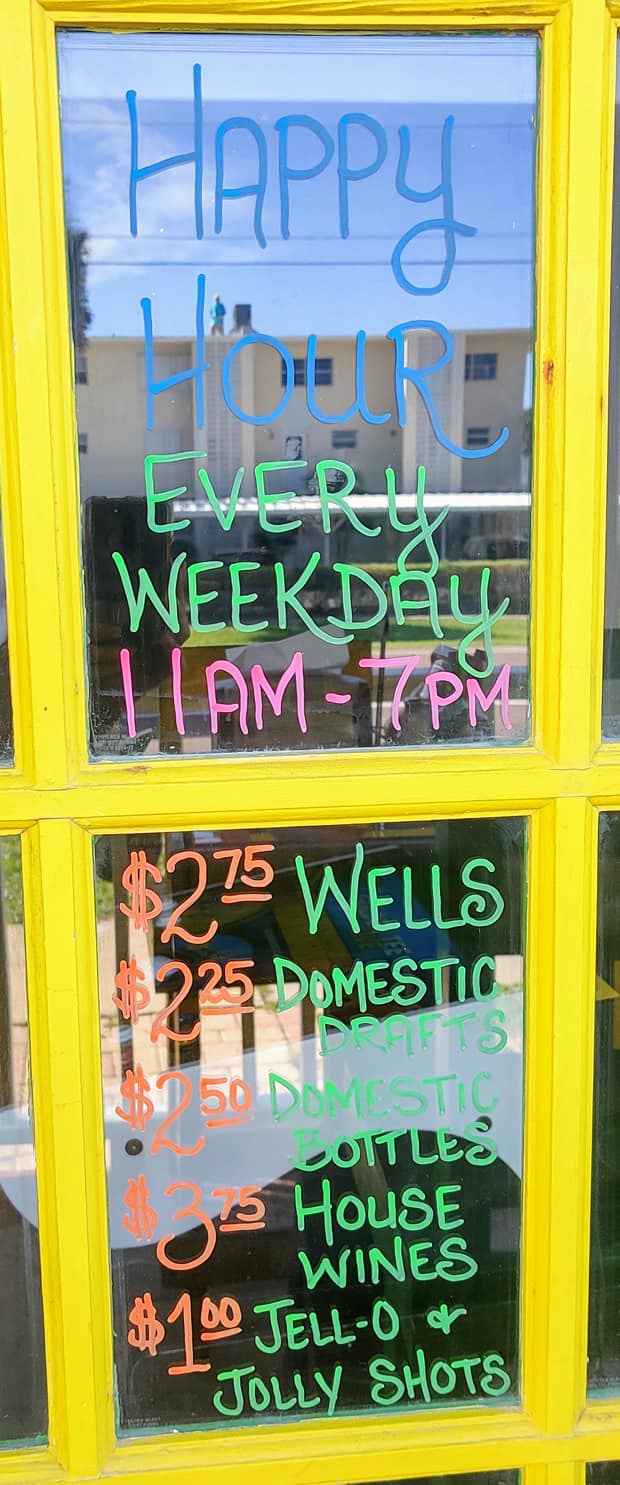 HAPPY
HOUR
EVERY
WEEKDAY
11AM-7PM
$2.75 WELLS
$2.25 DOMESTIC
DRAFTS
$2.50 DOMESTIC
BOTTLES
$3.75 HOUSE
WINES
$1.00 JELL-O &
JOLLY SHOTS